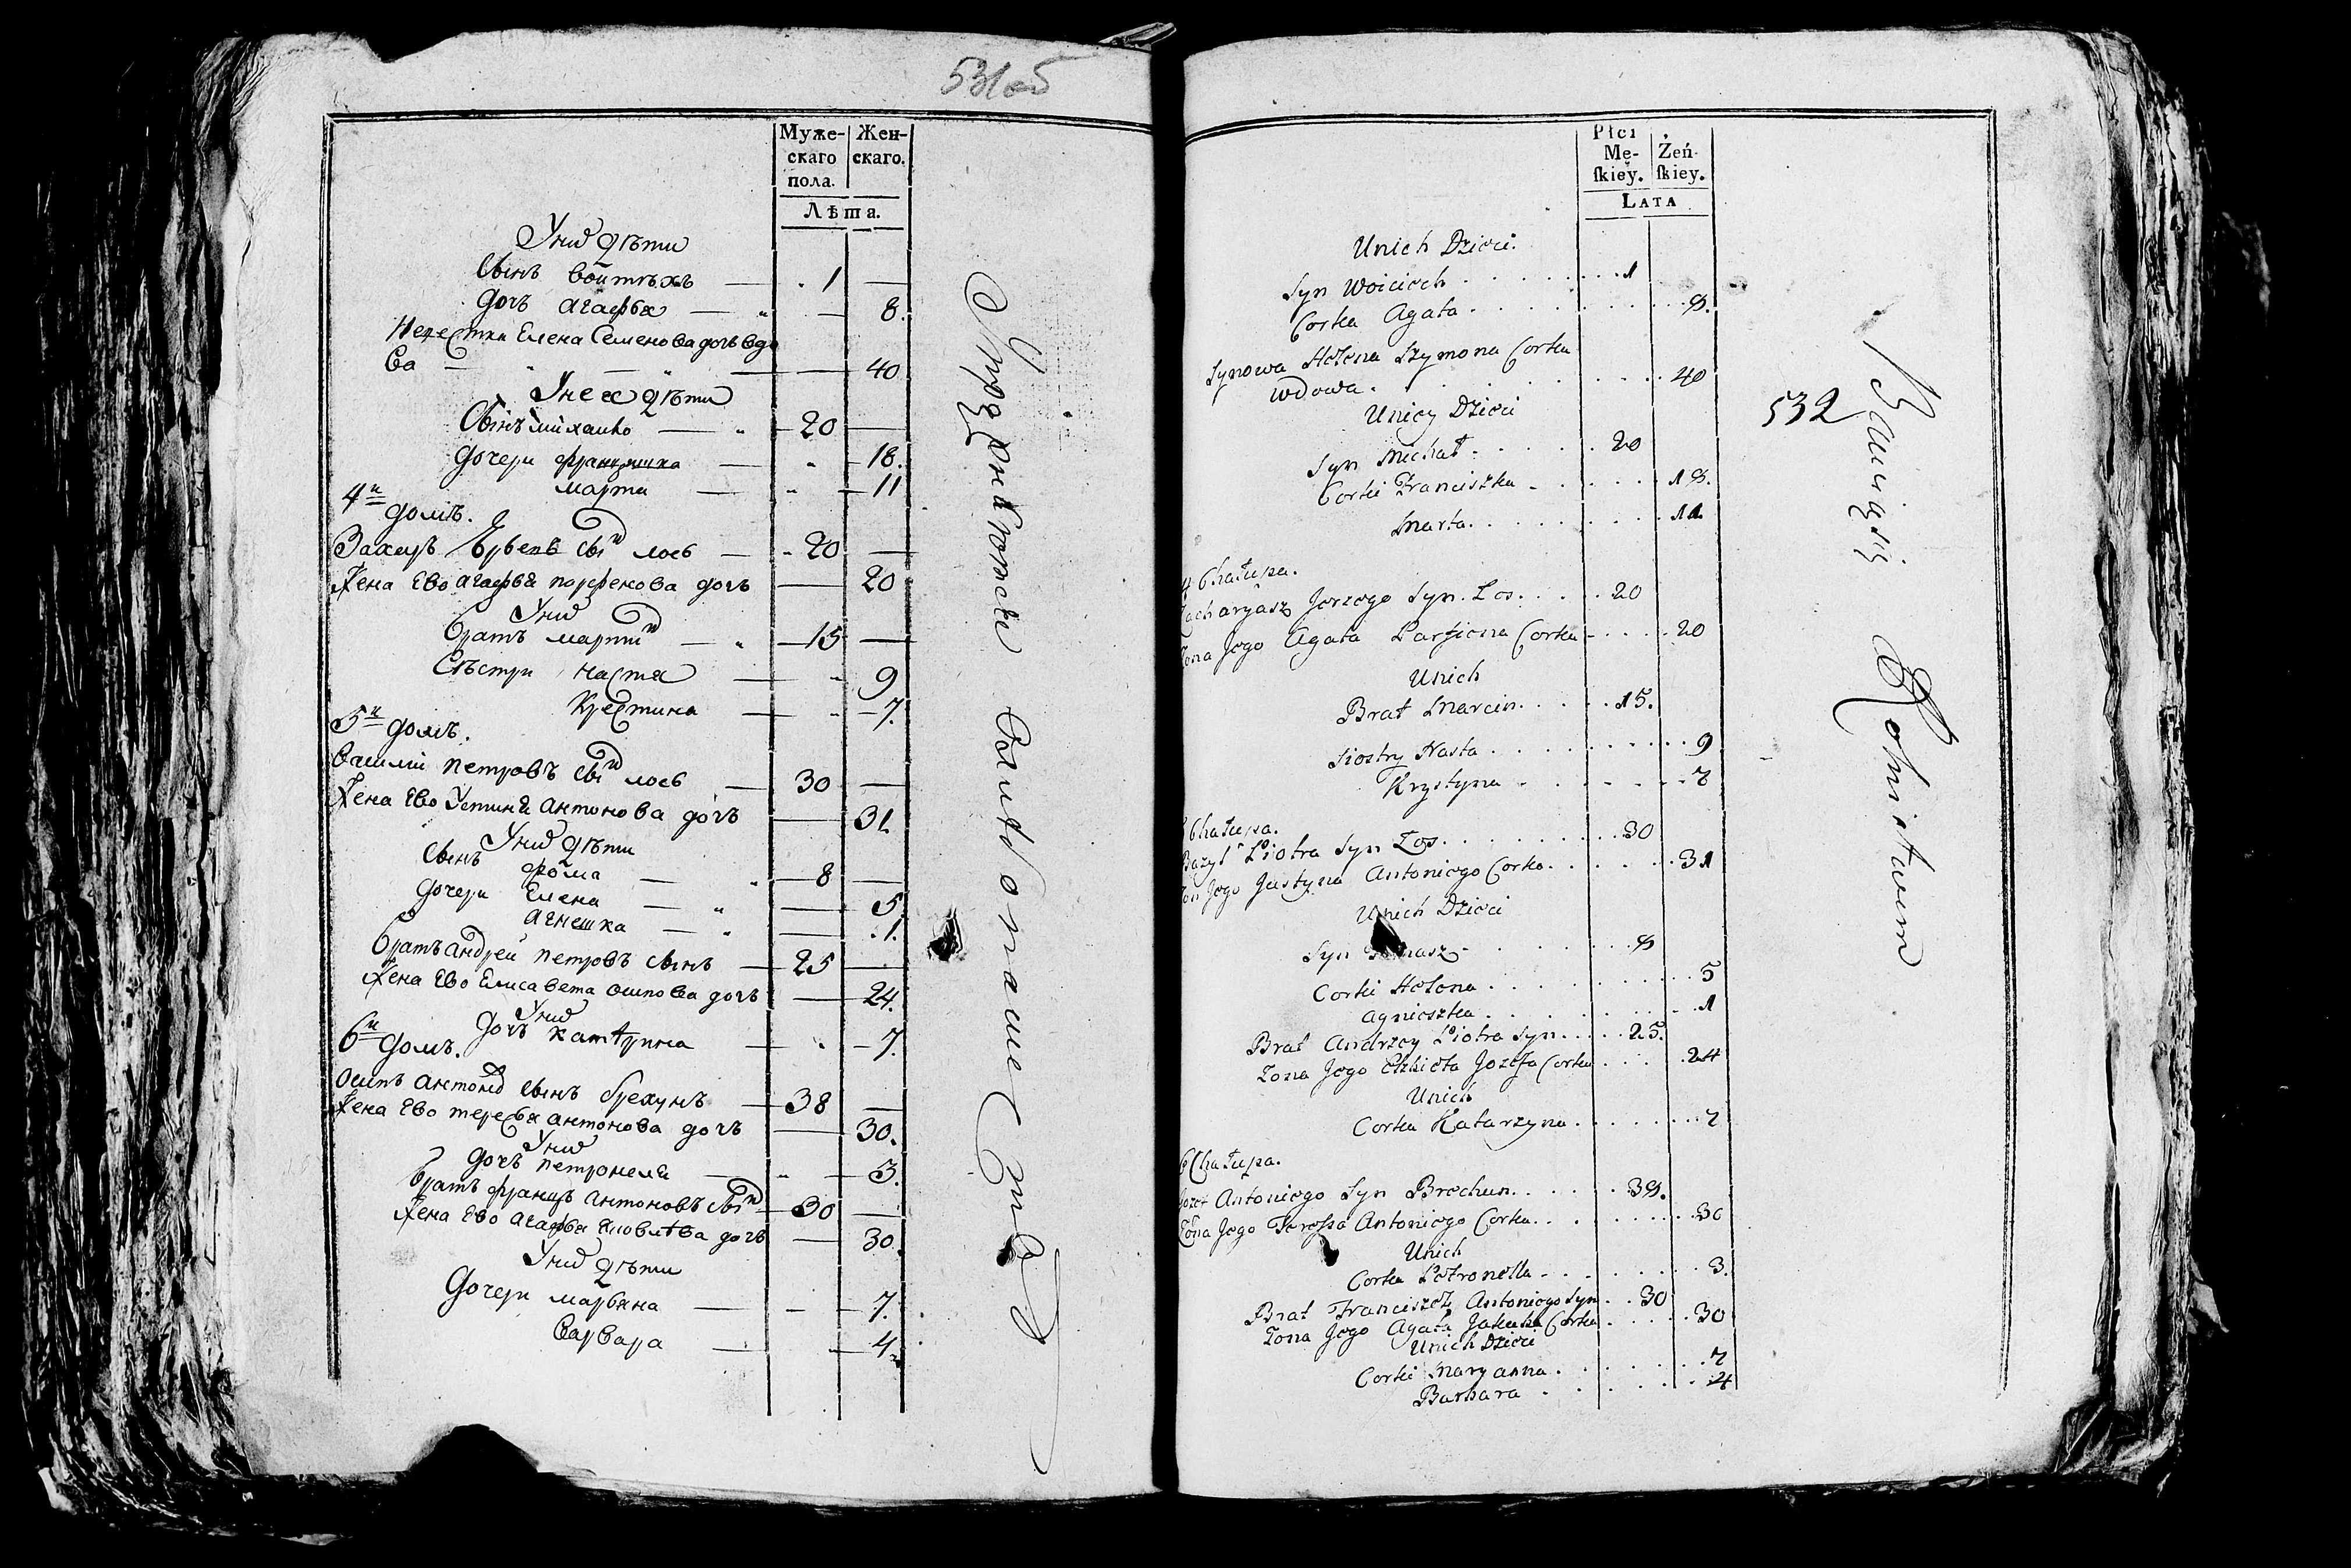 531об
Муже-
скаго
пола.
Жен-
скаго.
Лѣта.
Уних дѣти
Сынъ Войтѣхъ 1
Дочь Агафья 8.
Невестки Елена Семенова дочь вдо
ва 40
У нее дѣти
Сынъ Михайло 20
Дочери Францишка 18.
Марта 11
4й домъ.
Захаръ сын Лось 20
Жена Ево Агафья Парфенова дочь 20
Уних
братъ Мартин 15
Сѣстри Настя 9
Крестина 7.
5й домъ.
Василий Петровъ сын Лось 30
Жена Ево Устинья Антонова дочь 31
Уних дѣти
Сынъ Фома 8
Дочери Елена 5
Агнешка 1.
братъ Андрей Петровъ сынъ 25
Жена Ево Елисавета Осипова дочь 24.
Уних
Дочь Катерина 7.
6й домъ.
Осипъ Антонов сынъ Брехунъ 38
Жена Ево Тересья Антонова дочь 30.
Уних
дочь Петронеля 3.
братъ Францъ Антоновъ сын 30
Жена Ево Агафья Яковлева дочь 30.
Уних дѣти
Дочери Марьяна 7.
Варвара 4.
Płci
Mę-
skiey.
Żeń-
skiey.
LATA
Unich Dzieci.
Syn Woiciech 1
Corka Agata 8.
Synowa Helena Szymona Corka
wdowa. 40
Unicy Dzieci
Syn Michał 20
Corki Franciszka 18.
Marta 11.
4 Chałupa.
Zacharyasz Jerzego Syn. Łos. 20
Żona Jego Agata Parfiena Corka 20
Unich
Brat Marcin 15.
Siostry Nasta 9
Krystyna 7
5 Chałupa.
Bazyl Piotra Syn Łos. 30
Żon Jego Justyna Antoniego Corka 31
Unich Dzieci
Syn Tomasz 8
Corki Helena 5
Agnieszka 1
Brat Andrzey Piotra Syn 25.
Żona Jego Elzbieta Jozefa Corka 24
Unich
Corka Katarzyna 7
6 Chałupa.
Jozef Antoniego Syn Brechun 38.
Żona Jego Teressa Antoniego Corka 30
Unich
Corka Petronella 3.
Brat Franciszek Antoniego Syn 30
Żona Jego Agata Jakuba Corka 30
Unich Dzieci
Corki Maryanna 7
Barbara 4
532